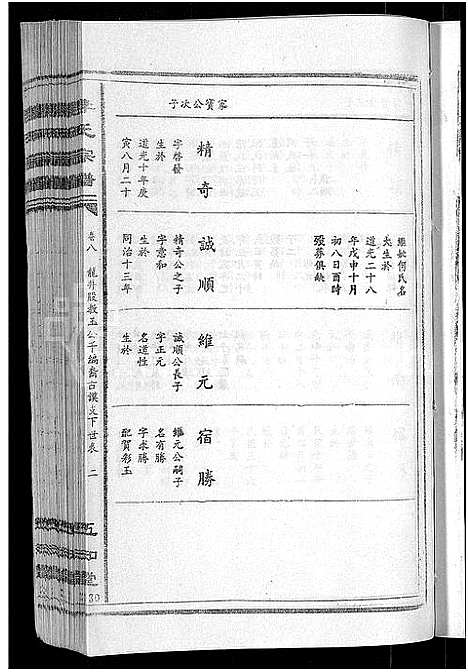 家寳公次子
精奇
字啓發
生於
道光十年庚
寅八月二十
誠順
精奇公之子
字意和
生於
同治十三年
繼配何氏名
夫生於
道光二十八
年戊申十月
初八日酉時
殁葬俱缺
維元
誠順公長子
字正元
名道性
生於
宿勝
維元公嗣子
名有勝
字求勝
配賀彩玉
氏宗譜
卷八
下世表
二
五知堂
30